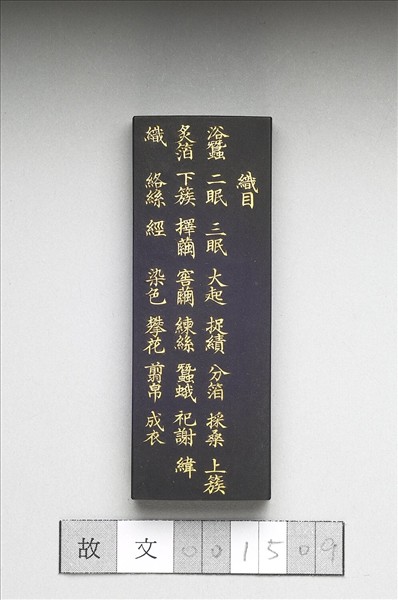 織目
浴蠶 二眠 三眠 大起 捉績 分箔 採桑 上簇
炙箔 下簇 擇繭 窖繭 練絲 蠶蛾 祀謝 緯
織 絡絲 經 染色 攀花 翦帛 成衣
故文001509